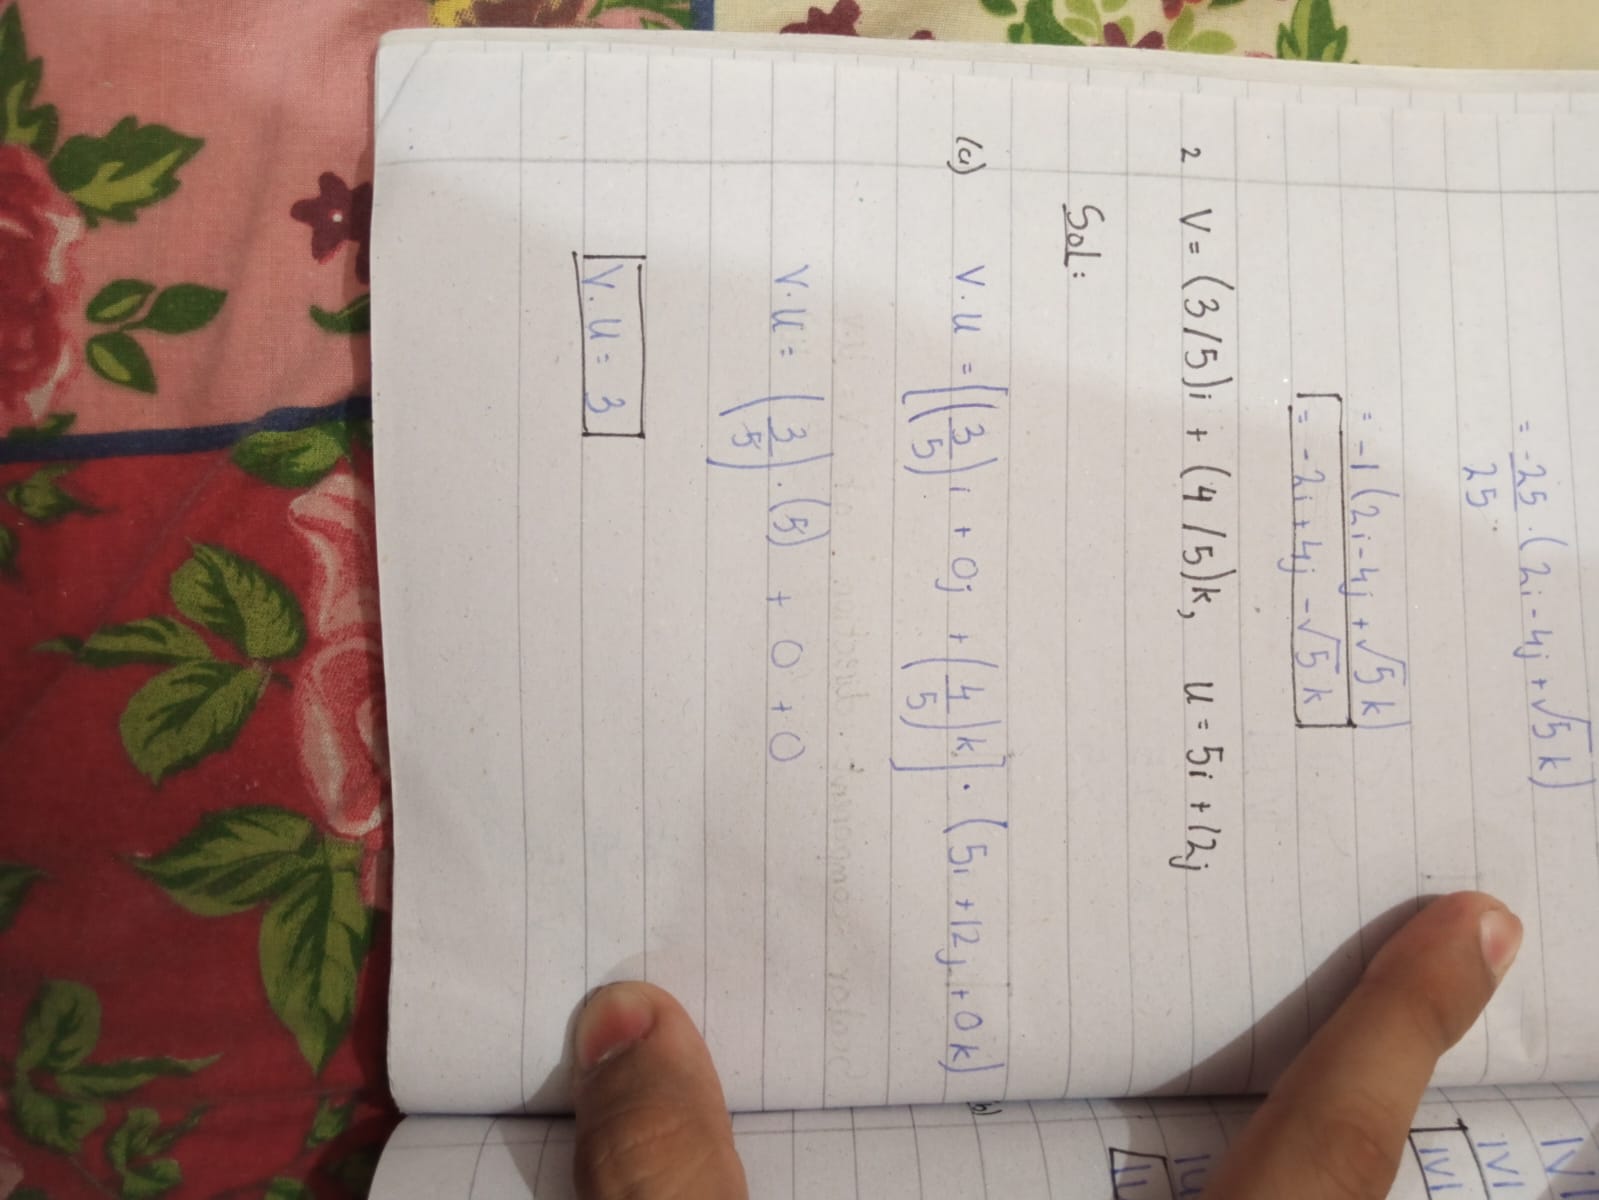 = -25/25 . (2i - 4j + √5 k)
= -1 (2i - 4j + √5 k)
= -2i + 4j - √5 k
2 V = (3/5)i + (4/5)k, u = 5i + 12j
Sol:
(a) V.u = [(3/5)i + 0j + (4/5)k] . (5i + 12j + 0k)
V.u = (3/5).(5) + 0 + 0
V.u = 3
(b)
|V|
|V|
|V|
|u
|u